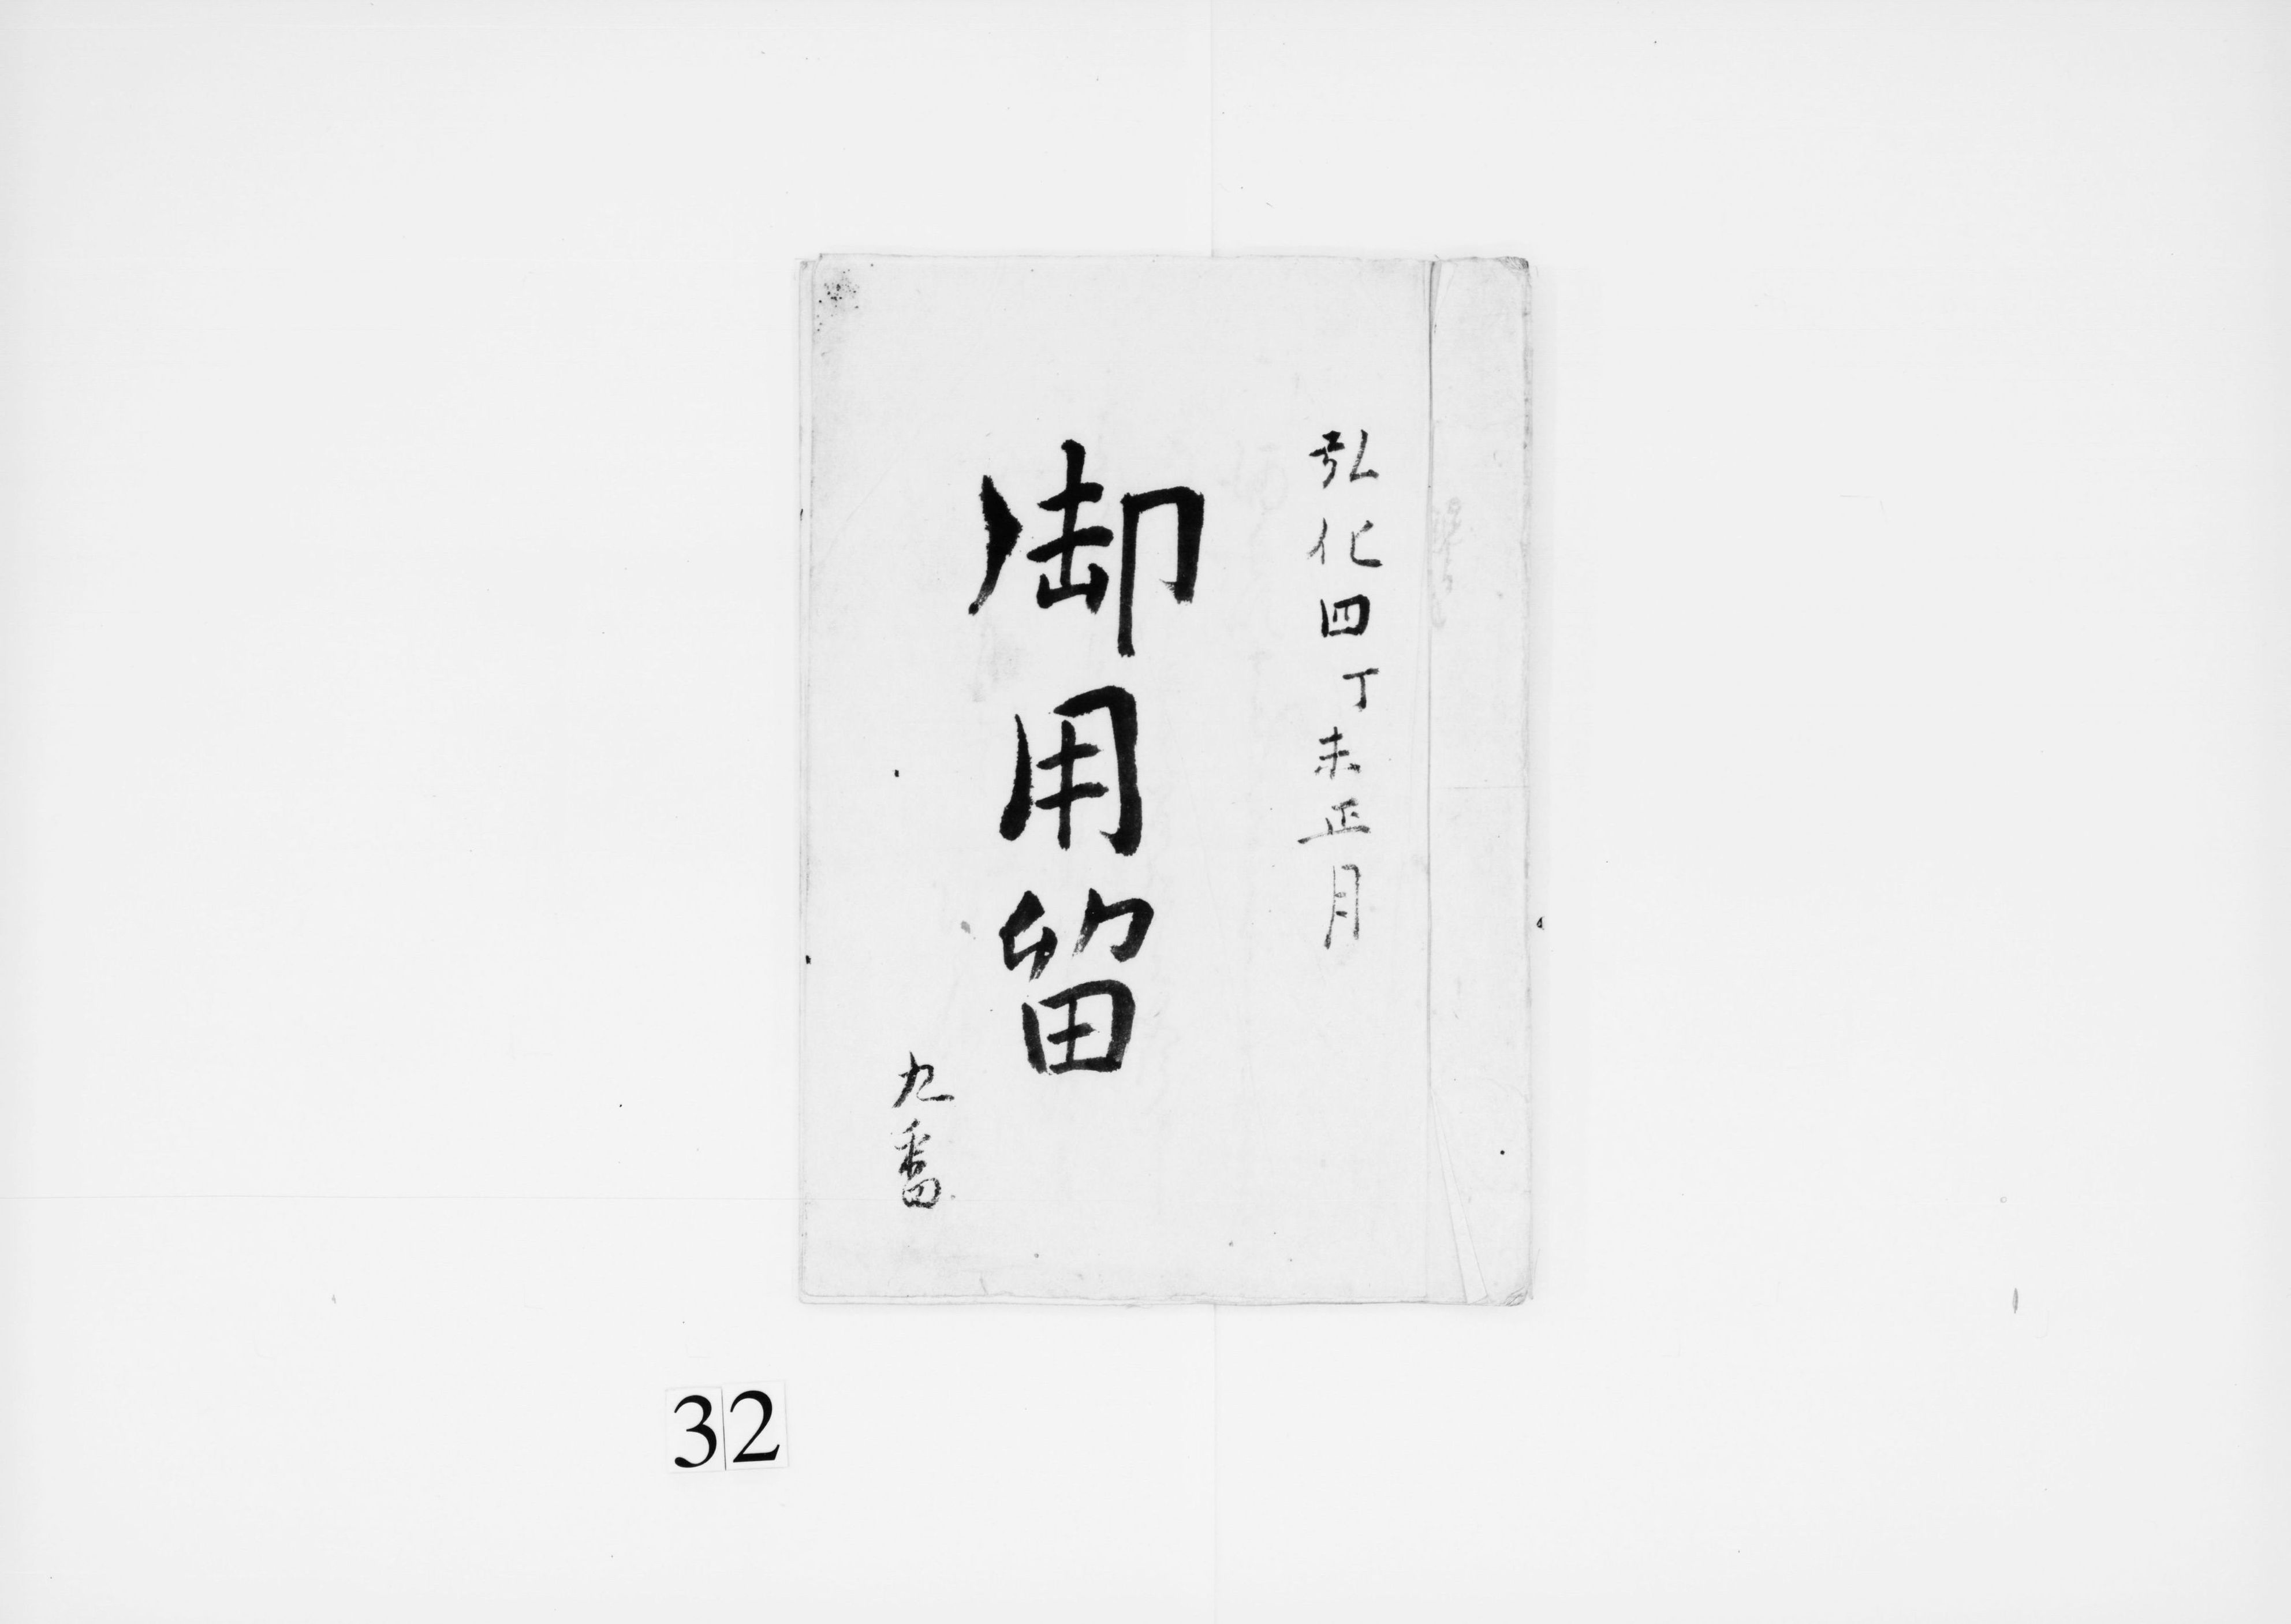 弘化四丁未正月
御用留
九番
32